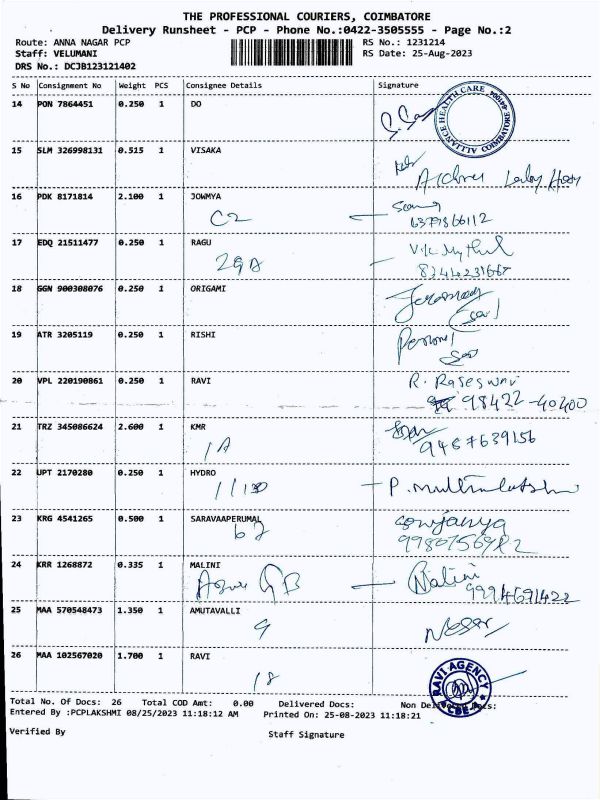 THE PROFESSIONAL COURIERS, COIMBATORE
Delivery Runsheet - PCP - Phone No.:0422-3505555 - Page No.:2
Route: ANNA NAGAR PCP RS No.: 1231214
Staff: VELUMANI RS Date: 25-Aug-2023
DRS No.: DCJB123121402
S No Consignment No Weight PCS Consignee Details Signature
14 PON 7864451 0.250 1 DO
ALLIANCE HEALTH CARE COIMBATORE-641004
15 SLM 326998131 0.515 1 VISAKA
16 PDK 8171814 2.100 1 JOWMYA
C2 6379866112
17 EDQ 21511477 0.250 1 RAGU
29A 8344231667
18 GGN 900308076 0.250 1 ORIGAMI
19 ATR 3205119 0.250 1 RISHI
20 VPL 220190861 0.250 1 RAVI R. Raseswari
98422-40400
21 TRZ 345086624 2.600 1 KMR
1A 9487639156
22 UPT 2170280 0.250 1 HYDRO
P. muthulakshmi
23 KRG 4541265 0.500 1 SARAVAAPERUMAL sowjanya
24 KRR 1268872 0.335 1 MALINI Malini
GB 9994691422
25 MAA 570548473 1.350 1 AMUTAVALLI
9
26 MAA 102567020 1.700 1 RAVI
18 RAVI AGENCY CBE
Total No. Of Docs: 26 Total COD Amt: 0.00 Delivered Docs: Non Delivered Docs:
Entered By :PCPLAKSHMI 08/25/2023 11:18:12 AM Printed On: 25-08-2023 11:18:21
Verified By Staff Signature